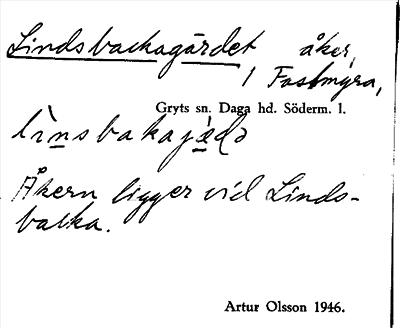 Lindsbackagärdet åker,
1 Fastmyra,
Gryts sn. Daga hd. Söderm. l.
lìnsbakaję̀də
Åkern ligger vid Linds-
backa.
Artur Olsson 1946.